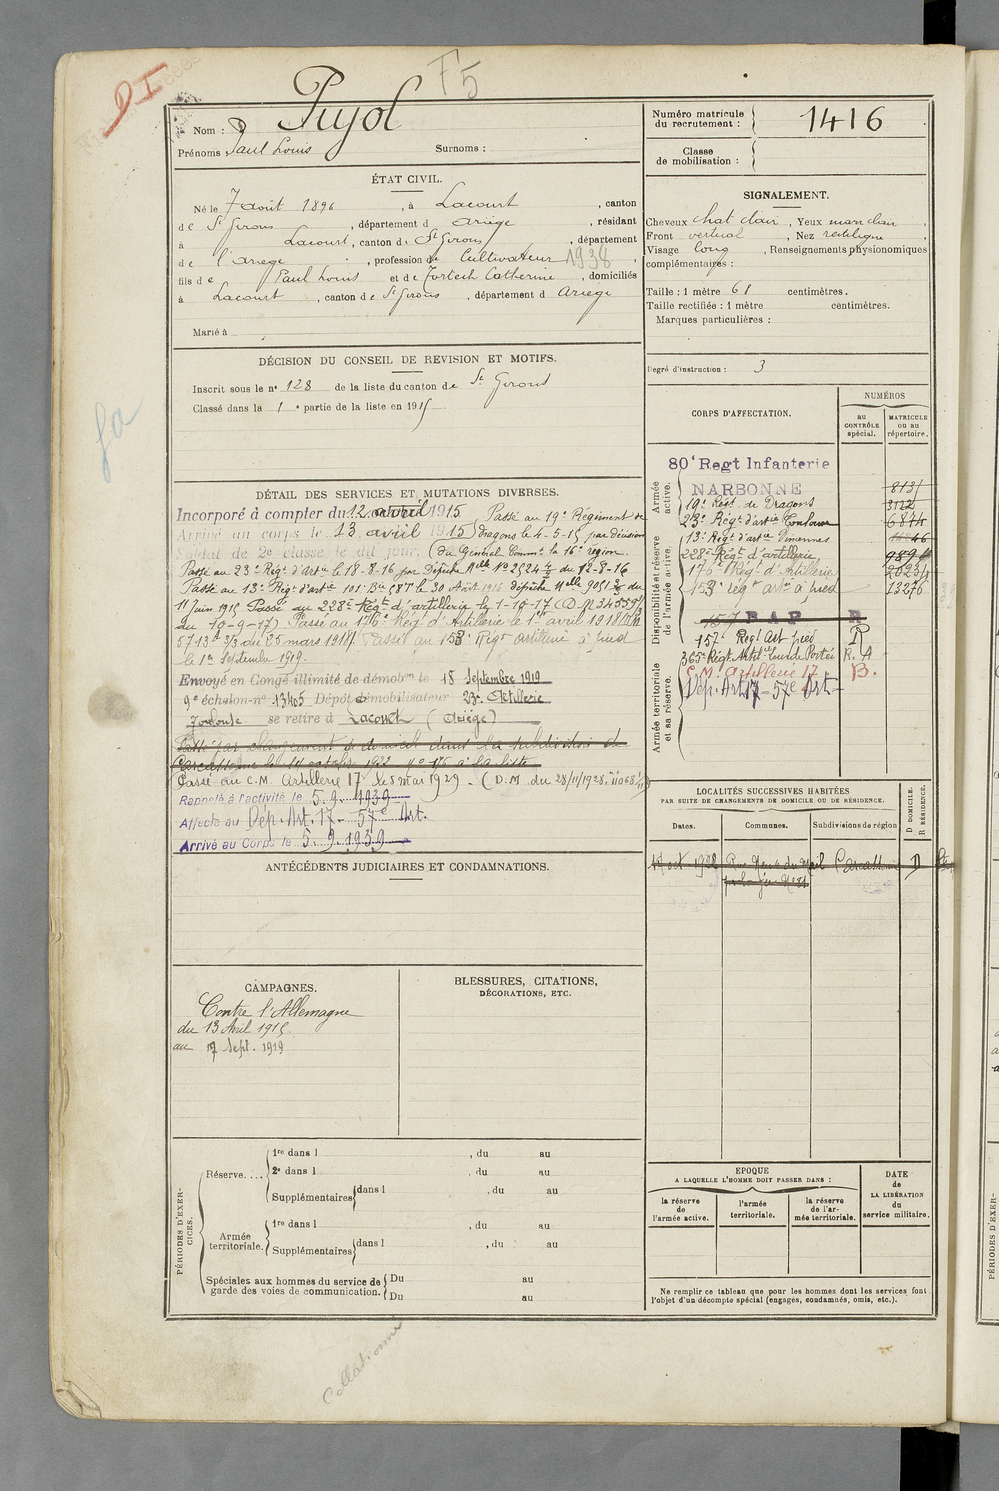 DI
F5
Nom : Pujol
Prénoms : Paul Louis Surnoms :
Numéro matricule du recrutement : 1416
Classe de mobilisation :
ÉTAT CIVIL.
Né le 7 août 1896, à Lacourt, canton
de St Girons, département d Ariège, résidant
à Lacourt, canton de St Girons, département
de l'Ariège, profession de Cultivateur 1938,
fils de Paul Louis et de Catherine, domiciliés
à Lacourt, canton de St Girons, département d Ariège
Marié à
SIGNALEMENT.
Cheveux chat clair, Yeux marr clair,
Front vertical, Nez rectiligne
Visage long, Renseignements physionomiques
complémentaires :
Taille : 1 mètre 68 centimètres.
Taille rectifiée : 1 mètre centimètres.
Marques particulières :
Degré d'instruction : 3
DÉCISION DU CONSEIL DE REVISION ET MOTIFS.
Inscrit sous le n° 128 de la liste du canton de St Girons
Classé dans la 1e partie de la liste en 1915
fa
DÉTAIL DES SERVICES ET MUTATIONS DIVERSES.
Incorporé à compter du 12 avril 1915 Passé au 19e Régiment de
Arrivé au corps le 13 avril 1915 dragons le 4-5-15 par décision
Soldat de 2e classe le dit jour. (du Général Commt la 16e région.
Passé au 23e Régt d'Artie le 18-8-16 par Dépêche Mlle N° 2524 du 12-8-16
Passé au 13e Régt d'artie le 30 Août 1916 dépêche Mlle du
11 juin 1915 Passé au 228e Régt d'artillerie le 1-10-17 (D.M.
du 10-9-17) Passé au 176e Rég d'Artillerie le 1er avril 1918
du 25 mars 1918). Passé au 153e Régt Artillerie à pied
le 1er Septembre 1919.
Envoyé en Congé illimité de démobon le 18 Septembre 1919
9e échelon-n° 13405 Dépôt démobilisateur 23e Artillerie
Toulouse se retire à Lacourt (Ariège)
Passé par changement de domicile dans la subdivision de
Carcassonne le 14 octobre 1922
Passé au C.M. Artillerie 17 le 5 mai 1929 - (D.M. du 28/11/1928
Rappelé à l'activité le 5.9.1939
Affecté au Dép. Art. 17 - 57e Art.
Arrivé au Corps le 5.9.1939
CORPS D'AFFECTATION.
NUMÉROS
au CONTRÔLE spécial.
MATRICULE ou au répertoire.
Armée active.
Disponibilité et réserve de l'armée active.
Armée territoriale et sa réserve.
80e Regt Infanterie
NARBONNE
19e Régt de Dragons 3112
23e Régt d'artie Toulouse 6874
13e Régt d'artie Vincennes
228e Régt d'artillerie
176e Rég. d'Artillerie
153e régt artie à pied
157 R A P R
157e Regt Art pied R
365e Régt Artil Lourde Portée R. A
C.M. Artillerie 17 B.
Dép. Art 17 - 57e Art -
LOCALITÉS SUCCESSIVES HABITÉES
PAR SUITE DE CHANGEMENTS DE DOMICILE OU DE RÉSIDENCE.
Dates. Communes. Subdivisions de région D DOMICILE. R RÉSIDENCE.
14 oct 1922 Carcassonne D
ANTÉCÉDENTS JUDICIAIRES ET CONDAMNATIONS.
CAMPAGNES.
Contre l'Allemagne
du 13 Avril 1915
au 17 Sept. 1919
BLESSURES, CITATIONS,
DÉCORATIONS, ETC.
PÉRIODES D'EXERCICES.
Réserve....
1re dans l , du au
2e dans l , du au
Supplémentaires dans l , du au
Armée territoriale.
1re dans l , du au
Supplémentaires dans l , du au
Spéciales aux hommes du service de garde des voies de communication.
Du au
Du au
EPOQUE
A LAQUELLE L'HOMME DOIT PASSER DANS :
la réserve de l'armée active.
l'armée territoriale.
la réserve de l'armée territoriale.
DATE de LA LIBÉRATION du service militaire.
Ne remplir ce tableau que pour les hommes dont les services font
l'objet d'un décompte spécial (engagés, condamnés, omis, etc.).
Collationné
PÉRIODES D'EXER-